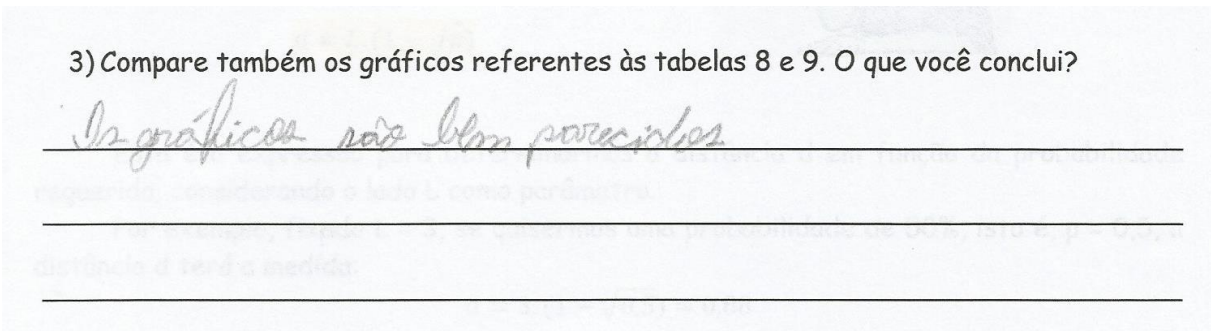 3) Compare também os gráficos referentes às tabelas 8 e 9. O que você conclui?
Os gráficos são bem parecidos